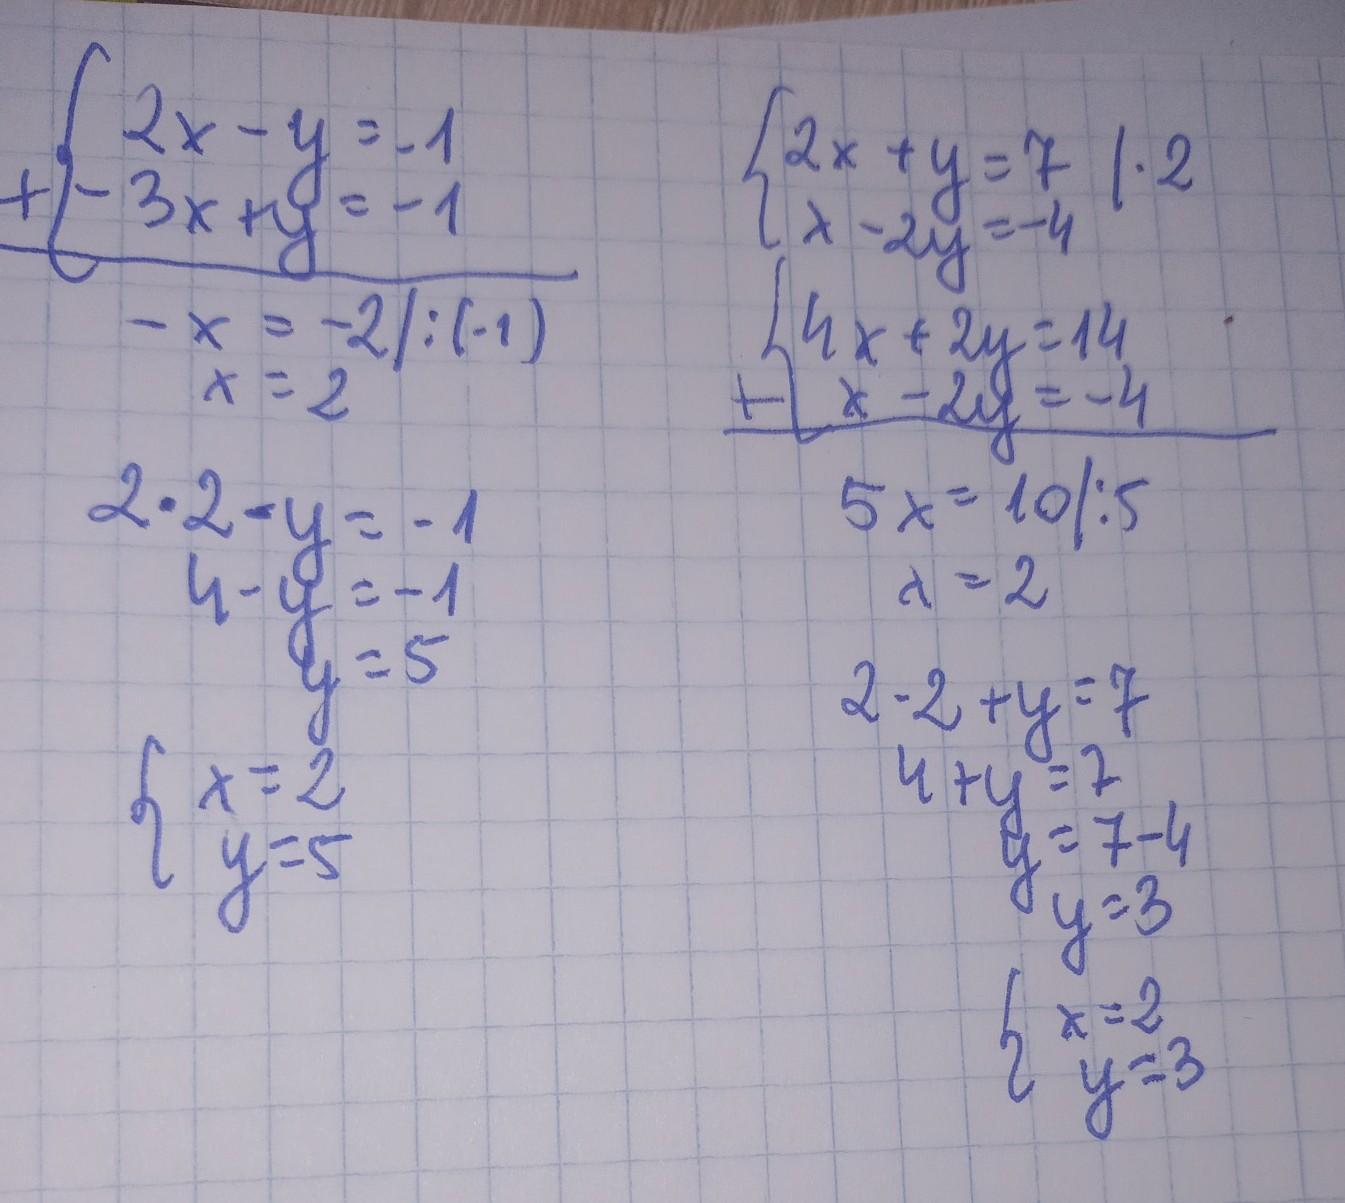 2x - y = -1
+ -3x + y = -1
-x = -2 /:(-1)
x = 2
2·2 - y = -1
4 - y = -1
y = 5
x = 2
y = 5
2x + y = 7 |·2
x - 2y = -4
4x + 2y = 14
+ x - 2y = -4
5x = 10 /:5
x = 2
2·2 + y = 7
4 + y = 7
y = 7 - 4
y = 3
x = 2
y = 3